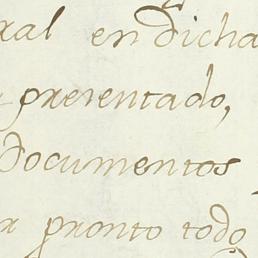 ral en dicha
presentado,
Documentos
r pronto todo